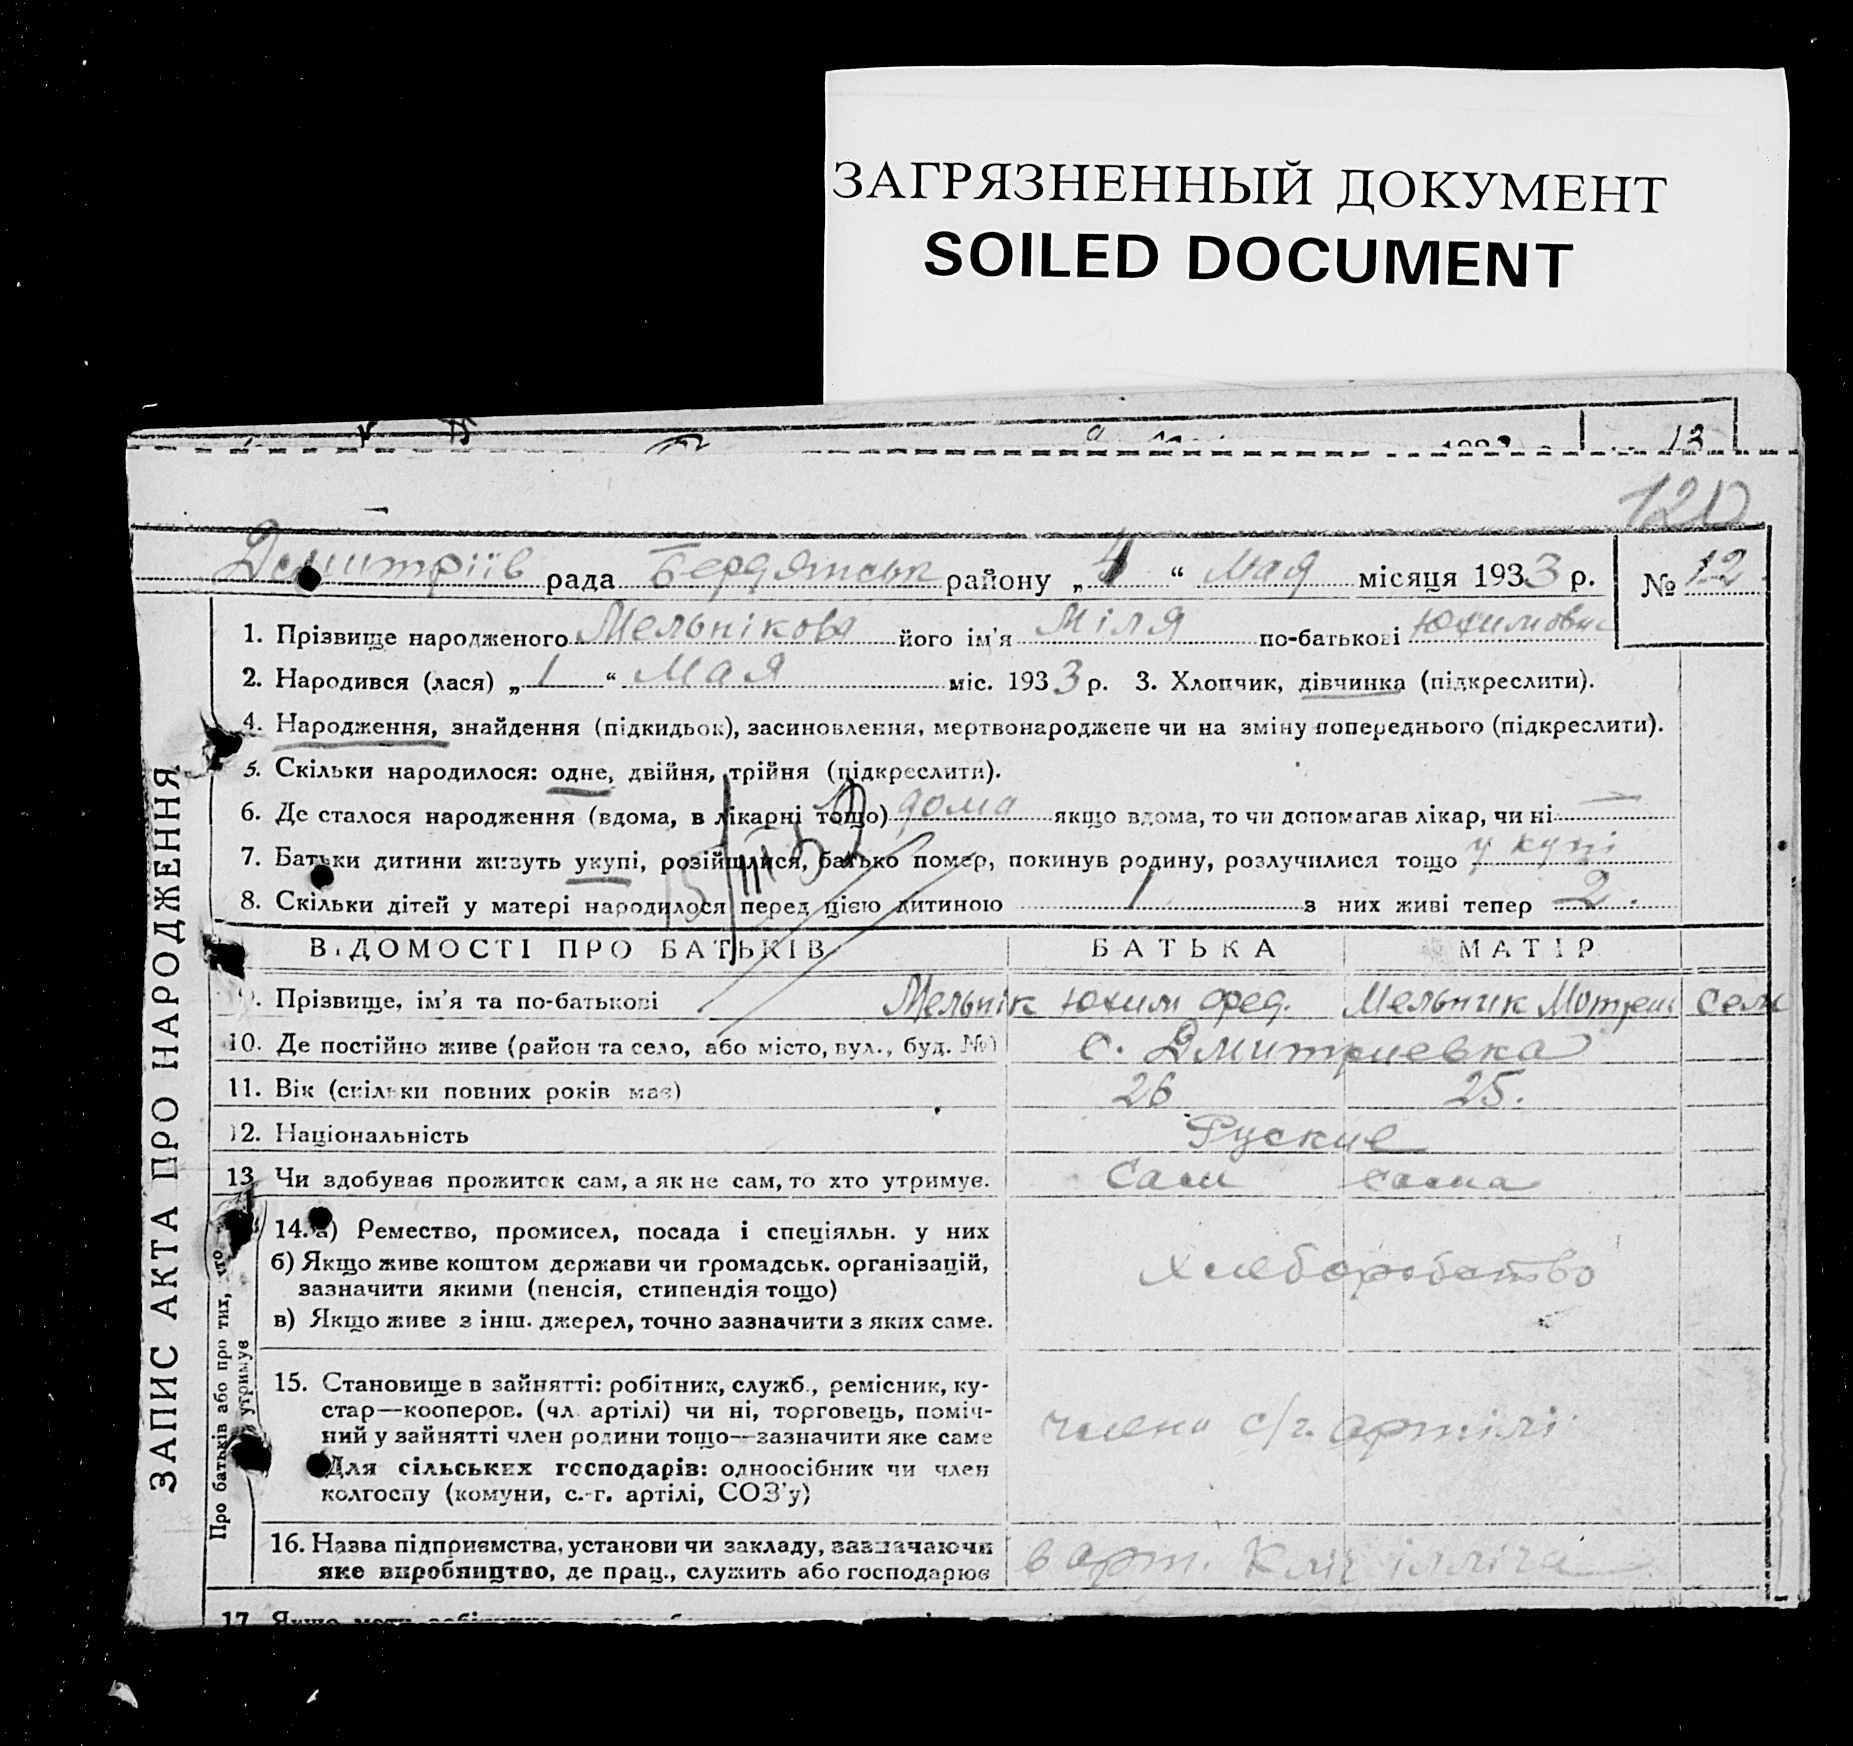 ЗАГРЯЗНЕННЫЙ ДОКУМЕНТ
SOILED DOCUMENT
13
120
Дмитріїв рада Бердянськ району „4“ Мая місяця 1933 р. № 12
1. Прізвище народженого Мельнікова його ім'я Міля по-батькові
2. Народився (лася) „1“ Мая міс. 1933 р. 3. Хлопчик, дівчинка (підкреслити).
4. Народження, знайдення (підкидьок), засиновлення, мертвонароджене чи на зміну попереднього (підкреслити).
5. Скільки народилося: одне, двійня, трійня (підкреслити).
6. Де сталося народження (вдома, в лікарні тощо) дома якщо вдома, то чи допомагав лікар, чи ні —
7. Батьки дитини живуть укупі, розійшлися, батько помер, покинув родину, розлучилися тощо у купі
8. Скільки дітей у матері народилося перед цією дитиною 1 з них живі тепер 2.
ВІДОМОСТІ ПРО БАТЬКІВ БАТЬКА МАТІР
9. Прізвище, ім'я та по-батькові Мельнік Юхим Фед. Мельник Мотрен Сем
10. Де постійно живе (район та село, або місто, вул., буд. №) с. Дмитриевка
11. Вік (скільки повних років має) 26 25.
12. Національність Руские
13. Чи здобував прожиток сам, а як не сам, то хто утримує. Сам сама
14. а) Ремество, промисел, посада і спеціяльн. у них
б) Якщо живе коштом держави чи громадськ. організацій,
зазначити якими (пенсія, стипендія тощо) хлеборобство
в) Якщо живе з інш. джерел, точно зазначити з яких саме.
15. Становище в зайнятті: робітник, служб., ремісник, ку-
стар—кооперов. (чл. артілі) чи ні, торговець, поміч-
ний у зайнятті член родини тощо—зазначити яке саме члени с/г. артілі
Для сільських господарів: одноосібник чи член
колгоспу (комуни, с.-г. артілі, СОЗ'у)
16. Назва підприємства, установи чи закладу, зазначаючи
яке виробництво, де прац., служить або господарює в арт. Кліч ілліча
17. Якщо мати
ЗАПИС АКТА ПРО НАРОДЖЕННЯ
Про батьків або про тих, хто
утримує